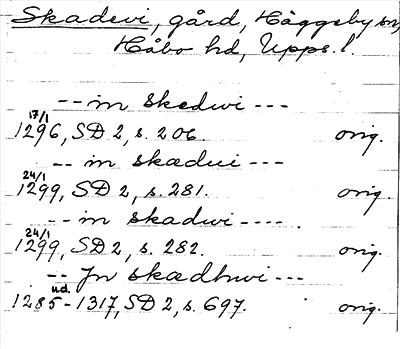 Skadevi, gård, Häggeby sn,
Håbo hd, Upps. l.
-- in skedwi ---
17/1
1296, SD 2, s. 206. orig.
-- in skædui ---
24/1
1299, SD 2, s. 281. orig.
-- in skadwi ----
24/1
1299, SD 2, s. 282. orig.
-- Jn skædhwi ---
u.d.
1285-1317, SD 2, s. 697. orig.